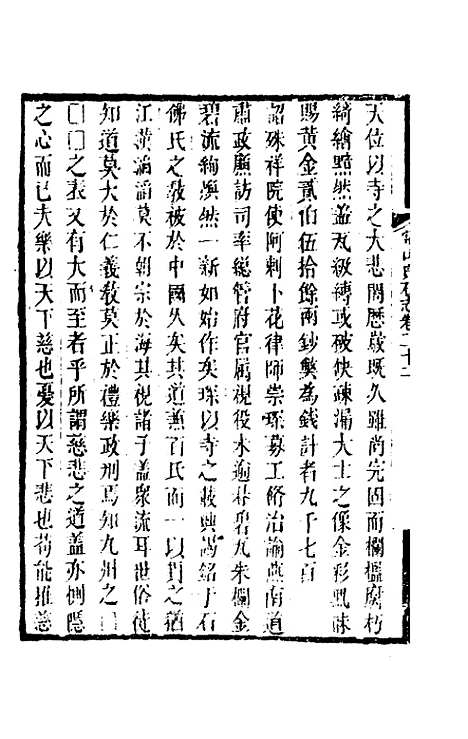 天位以寺之大悲閣歷歲既久雖尚完固而欄檻腐朽
綺繪黯然蓋瓦級磚或破缺疎漏大士之像金彩黤昧
賜黃金貳伯伍拾餘兩鈔幣為錢計者九千七百
詔殊祥院使阿剌卜花律師崇琛募工脩治諭燕南道
肅政廉訪司率總管府官属視役不逾朞碧瓦朱欄金
碧流絢煥然一新如始作矣琛以寺之載興謁銘于石
佛氏之敎被於中國久矣其道薰百氏而一以貫之猶
江漢滔滔莫不朝宗於海其視諸子蓋衆流耳世俗徒
知道莫大於仁義敎莫正於禮樂政刑焉知九州之囗
囗囗之表又有大而至者乎所謂慈悲之道蓋亦惻隱
之心而已夫樂以天下慈也憂以天下悲也苟能推慈